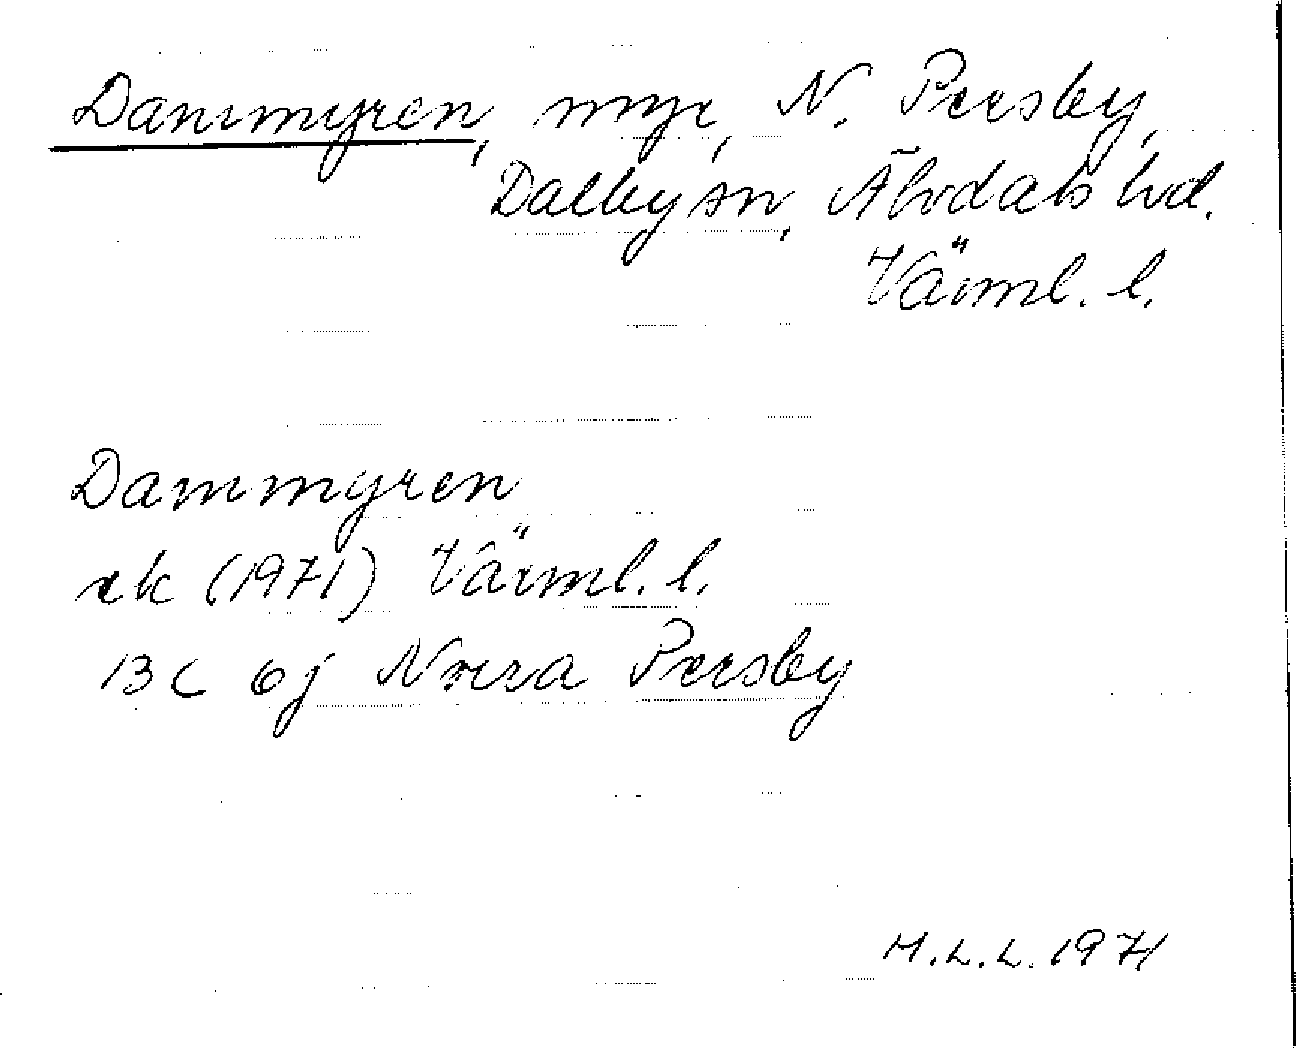 Dammyren, myr, N. Persby,
Dalby sn, Älvdals hd.
Värml. l.
Dammyren
ek (1971) Värml. l.
13 C 6j Norra Persby
M.L.L. 1971